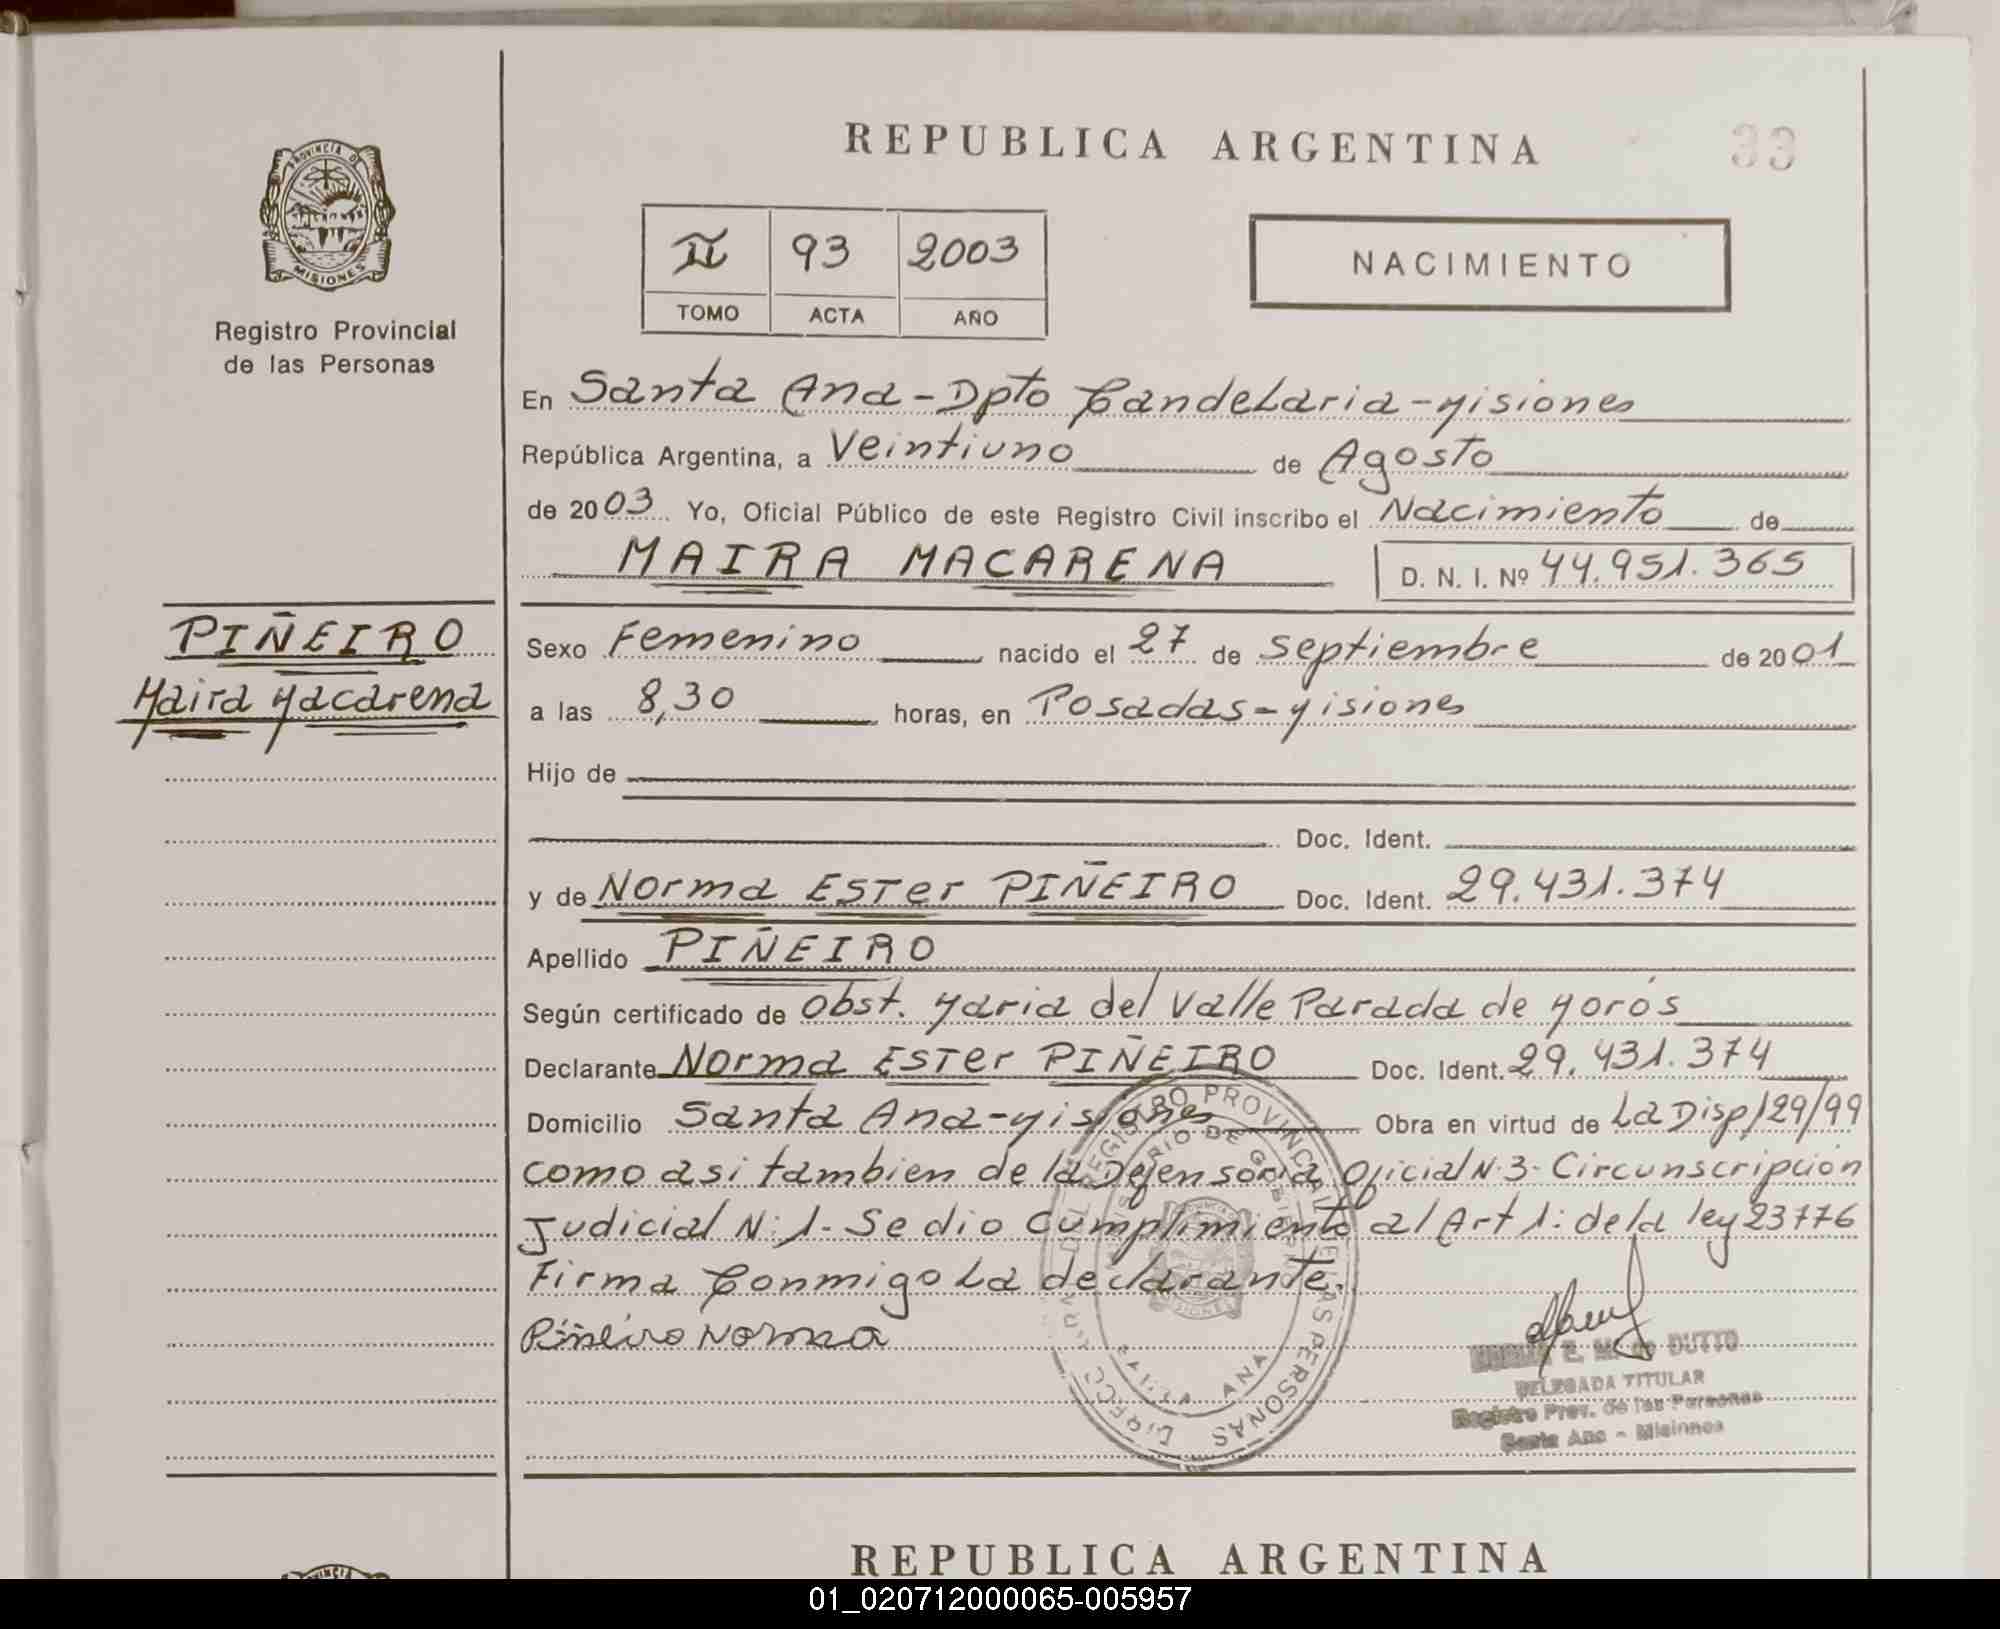 REPUBLICA ARGENTINA
33
PROVINCIA DE
MISIONES
Registro Provincial
de las Personas
II 93 2003
TOMO ACTA AÑO
NACIMIENTO
En Santa Ana - Dpto Candelaria - Misiones
República Argentina, a Veintiuno de Agosto
de 2003. Yo, Oficial Público de este Registro Civil inscribo el Nacimiento de
MAIRA MACARENA D. N. I. Nº 44.951.365
PIÑEIRO
Maira Macarena
Sexo Femenino nacido el 27 de septiembre de 2001
a las 8,30 horas, en Posadas - Misiones
Hijo de
Doc. Ident.
y de Norma Ester PIÑEIRO Doc. Ident. 29.431.374
Apellido PIÑEIRO
Según certificado de Obst. Maria del Valle Parada de Morós
Declarante Norma Ester PIÑEIRO Doc. Ident. 29.431.374
Domicilio Santa Ana - Misiones Obra en virtud de La Disp, 129/99
como asi tambien de la Defensoria Oficial N. 3 - Circunscripción
Judicial N: 1 - Se dio Cumplimiento al Art 1: de la ley 23776
Firma Conmigo La declarante.
Piñeiro Norma
E. M. de DUTTO
DELEGADA TITULAR
Registro Prov. de las Personas
Santa Ana - Misiones
DIRECC. GRAL DEL REGISTRO PROVINCIAL DE LAS PERSONAS
MINISTERIO DE GOBIERNO
SANTA ANA
REPUBLICA ARGENTINA
01_020712000065-005957